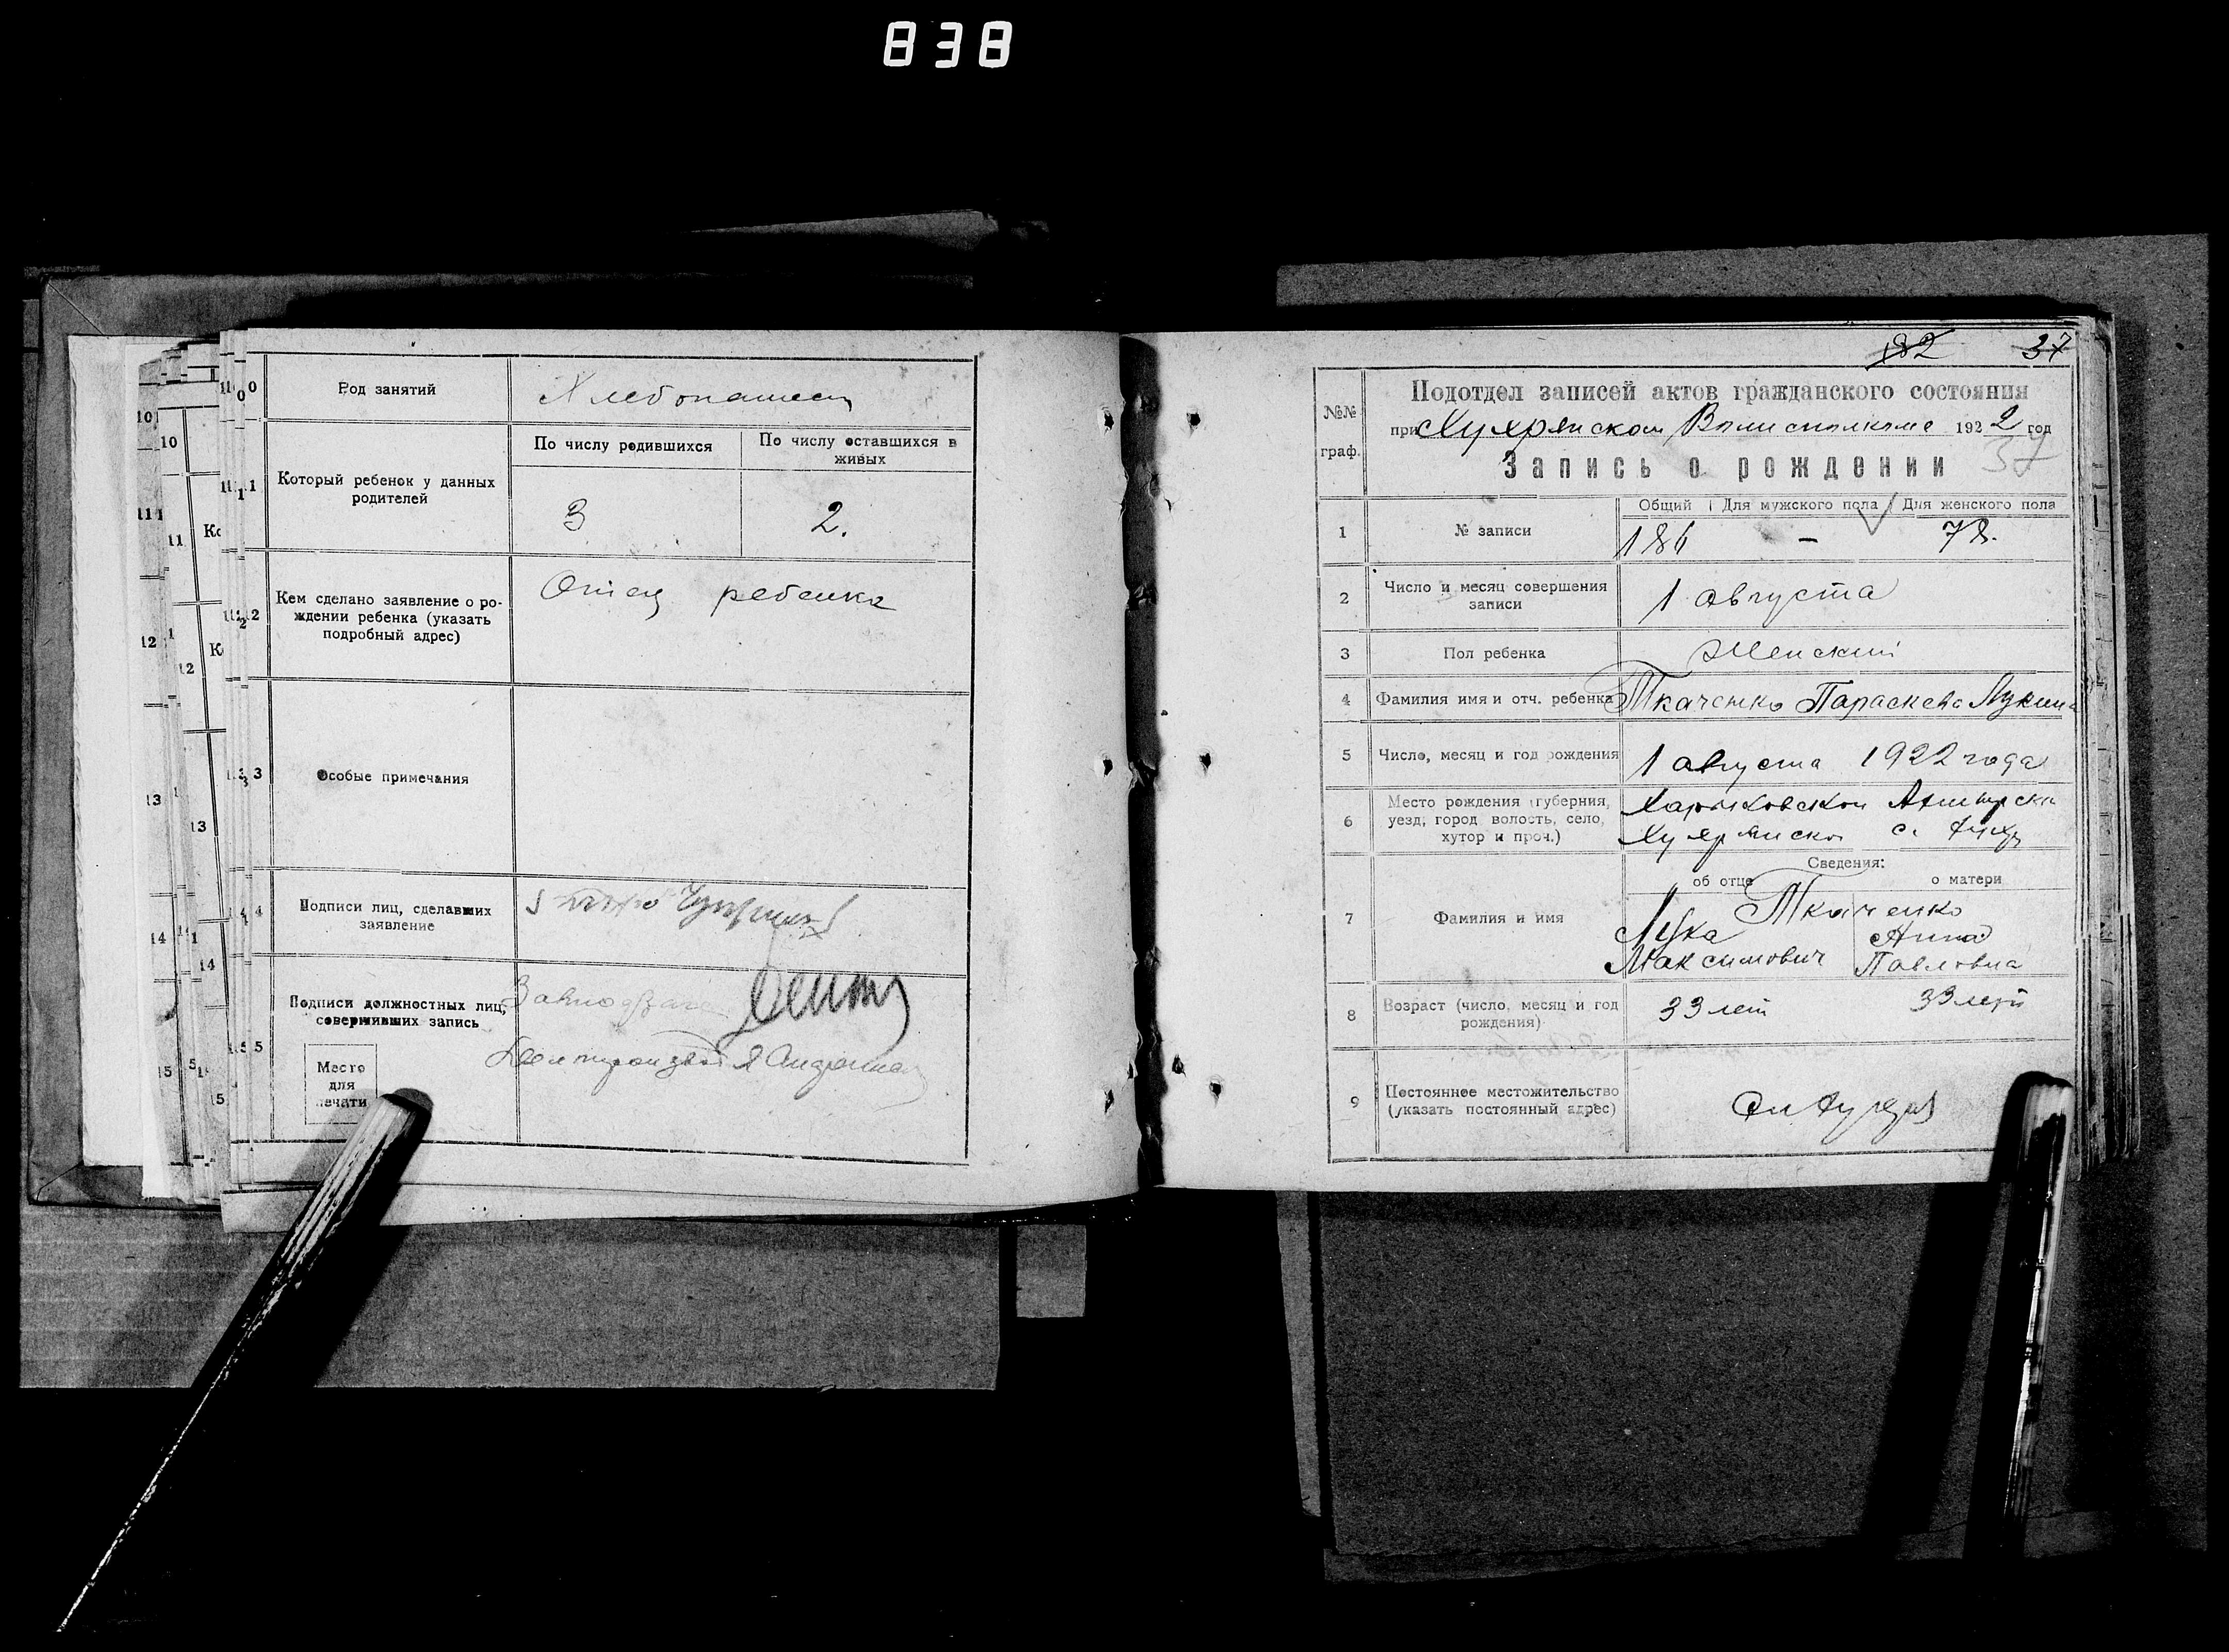 838
Род занятий
Хлебопашец
Который ребенок у данных
родителей
По числу родившихся
По числу оставшихся в
живых
3
2.
Кем сделано заявление о ро-
ждении ребенка (указать
подробный адрес)
Отец ребенка
Особые примечания
Подписи лиц, сделавших
заявление
Подписи должностных лиц,
совершивших запись
Место
для
печати
182
37
№№
граф.
Подотдел записей актов гражданского состояния
при Хухрянском Волисполкоме 1922 год
37
Запись о рождении
1
№ записи
Общий
Для мужского пола
Для женского пола
186
–
78.
2
Число и месяц совершения
записи
1 августа
3
Пол ребенка
Женский
4
Фамилия имя и отч. ребенка
Ткаченко Параскева Лукина
5
Число, месяц и год рождения
1 августа 1922 года
6
Место рождения (губерния,
уезд, город волость, село,
хутор и проч.)
Харьковской
Хухрянской с.
Сведения:
об отце
о матери
7
Фамилия и имя
Ткаченко
Лука
Максимович
Анна
Павловна
8
Возраст (число, месяц и год
рождения)
33 лет
33 лет
9
Постоянное местожительство
(указать постоянный адрес)